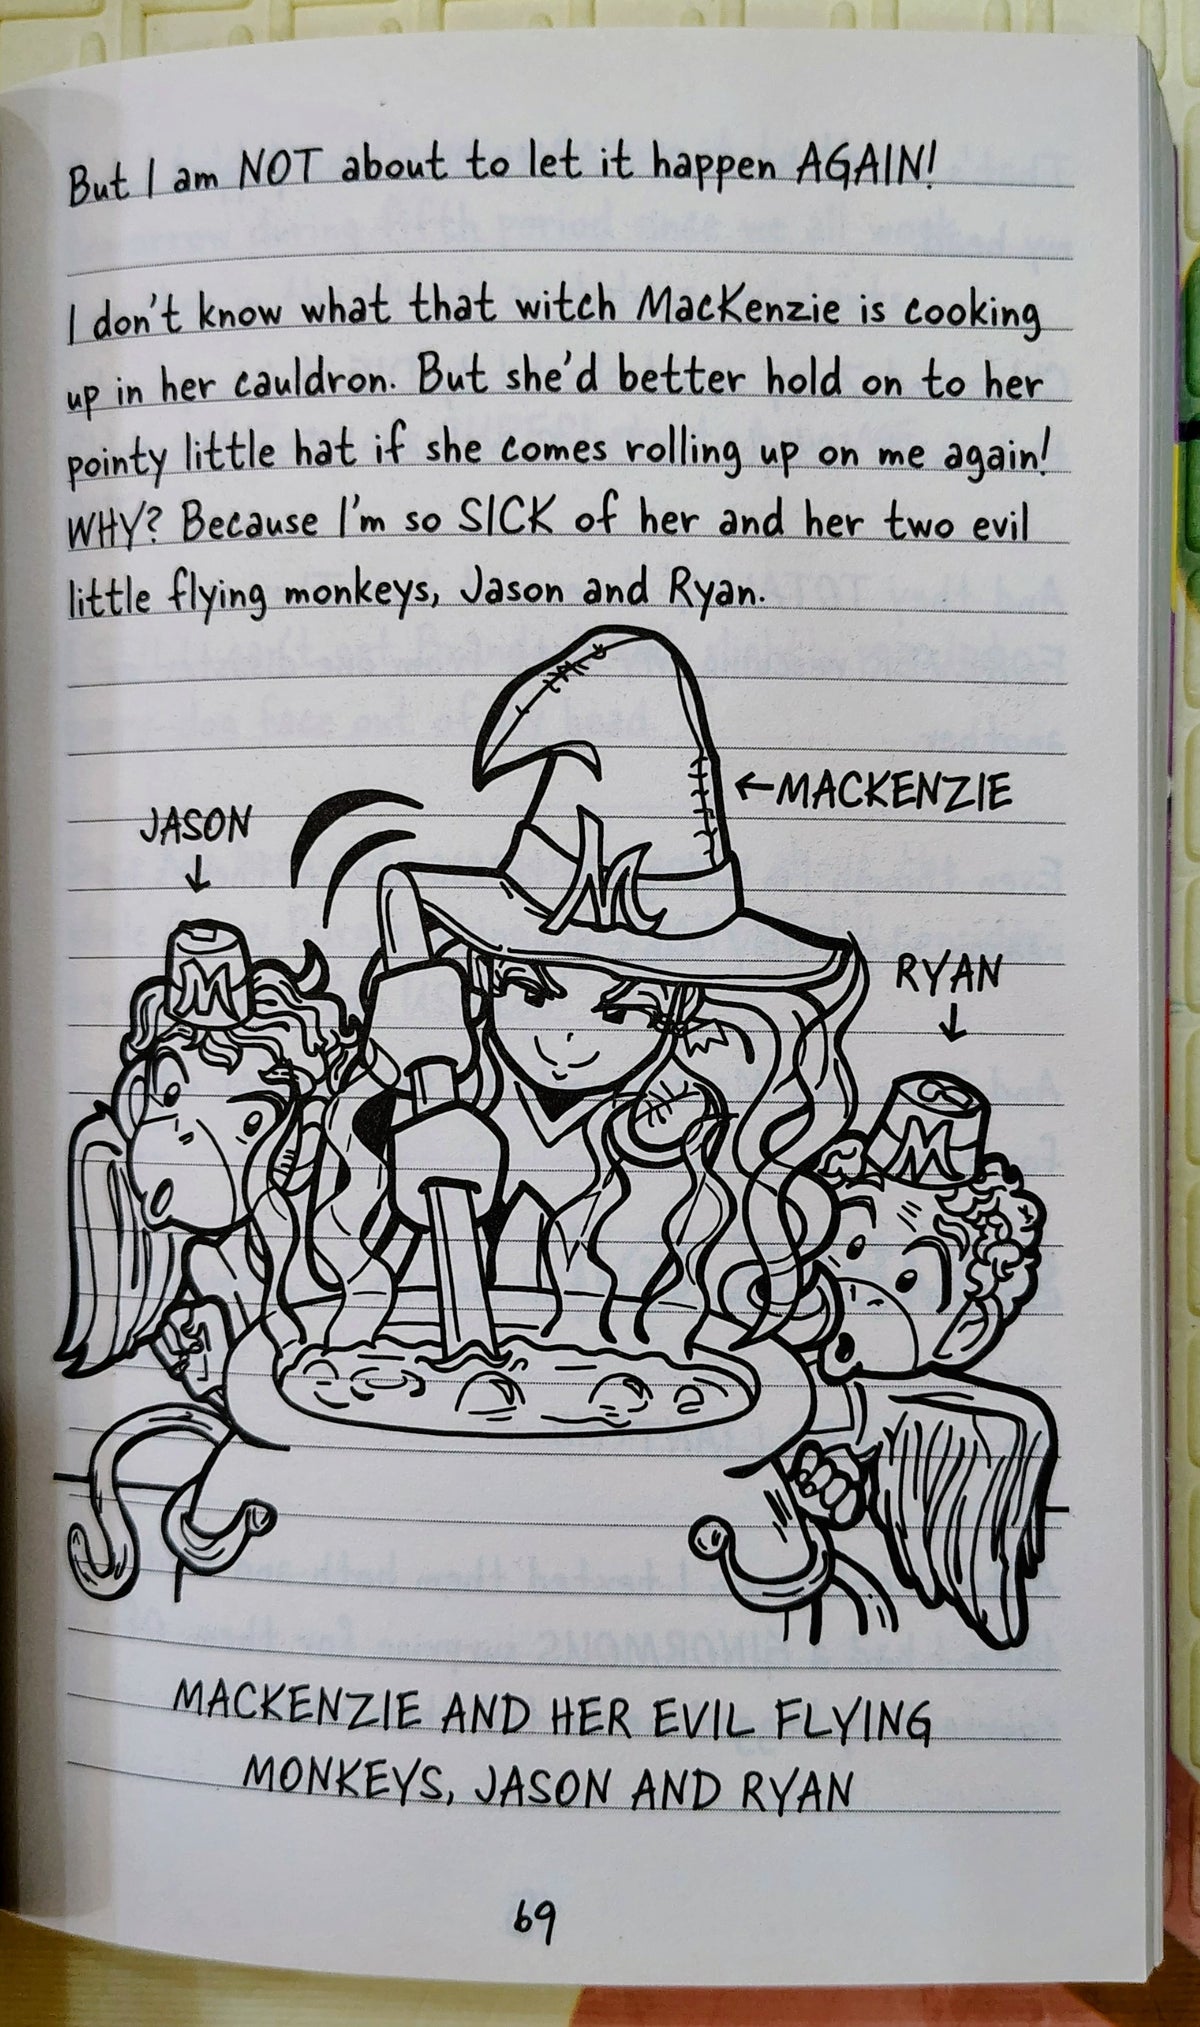 But I am NOT about to let it happen AGAIN!
I don't know what that witch MacKenzie is cooking
up in her cauldron. But she'd better hold on to her
pointy little hat if she comes rolling up on me again!
WHY? Because I'm so SICK of her and her two evil
little flying monkeys, Jason and Ryan.
←MACKENZIE
JASON
↓
M
RYAN
↓
M
M
MACKENZIE AND HER EVIL FLYING
MONKEYS, JASON AND RYAN
69